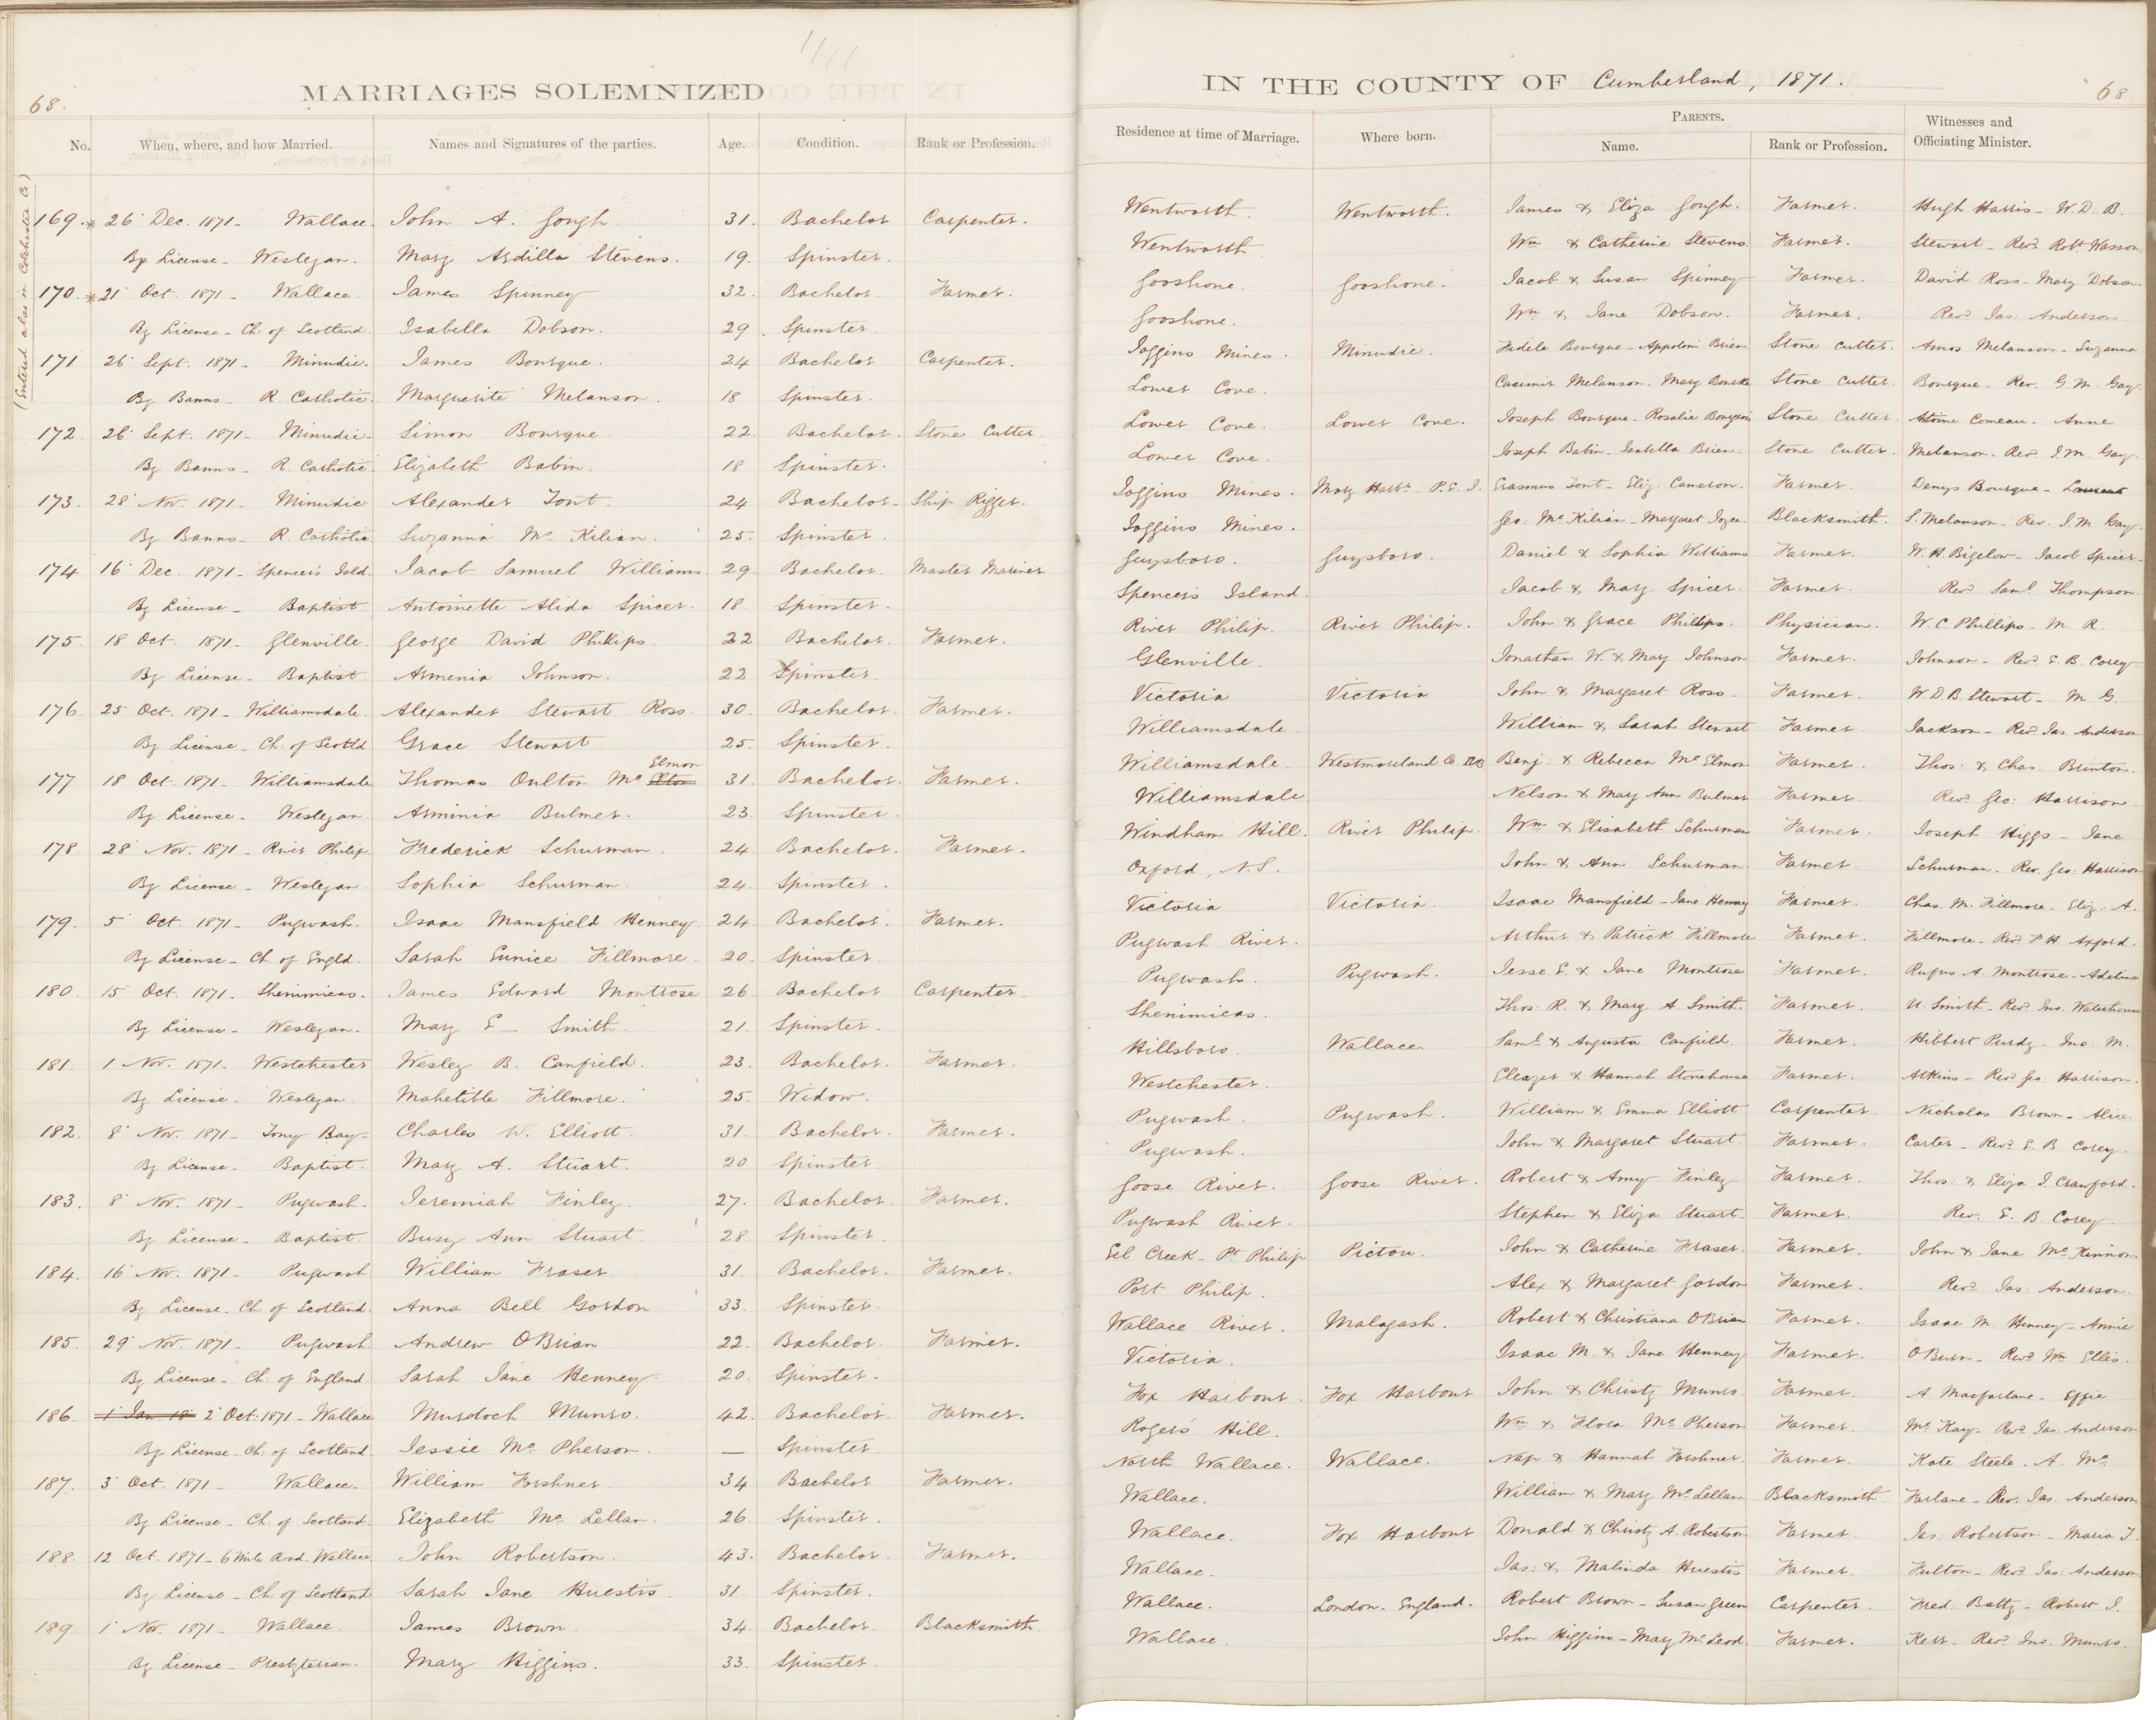 68.
MARRIAGES SOLEMNIZED
No. When, where, and how Married. Names and Signatures of the parties. Age. Condition. Rank or Profession.
(Entered also in Colchester Co.)
169. * 26 Dec. 1871 - Wallace. John A. Gough 31. Bachelor Carpenter.
By License - Wesleyan. Mary Ardilla Stevens. 19. Spinster.
170. * 21 Oct. 1871 - Wallace. James Spinney 32. Bachelor. Farmer.
By License - Ch. of Scotland. Isabella Dobson. 29. Spinster.
171 26 Sept. 1871 - Minudie. James Bourque. 24 Bachelor Carpenter.
By Banns - R. Catholic. Marguerite Melanson. 18 Spinster.
172. 26 Sept. 1871 - Minudie. Simon Bourque 22. Bachelor. Stone Cutter.
By Banns - R. Catholic Elizabeth Babin. 18 Spinster.
173. 28 Nov. 1871 - Minudie Alexander Font. 24 Bachelor - Ship Rigger.
By Banns - R. Catholic Suzanna Mc Kilian. 25. Spinster.
174 16 Dec. 1871 - Spencer's Isld. Jacob Samuel Williams. 29. Bachelor Master Mariner
By License - Baptist Antoinette Alida Spicer. 18. Spinster.
175. 18 Oct. 1871 - Glenville. George David Phillips. 22 Bachelor. Farmer.
By License - Baptist. Armenia Johnson. 22 Spinster
176. 25 Oct. 1871 - Williamsdale. Alexander Stewart Ross. 30. Bachelor. Farmer.
By License - Ch. of Scotld Grace Stewart 25. Spinster.
Elmon
177 18 Oct. 1871 - Williamsdale Thomas Oulton Mc 31. Bachelor. Farmer.
By License - Wesleyan Arminia Bulmer. 23. Spinster
178. 28 Nov. 1871 - River Philip. Frederick Schurman. 24 Bachelor. Farmer.
By License - Wesleyan Sophia Schurman. 24. Spinster.
179. 5 Oct. 1871 - Pugwash. Isaac Mansfield Henney 24. Bachelor. Farmer.
By License - Ch. of Engld. Sarah Eunice Fillmore. 20. Spinster.
180. 15 Oct. 1871 - Shinimicas. James Edward Montrose 26 Bachelor Carpenter.
By License - Wesleyan. Mary E - Smith. 21. Spinster.
181. 1 Nov. 1871 - Westchester Wesley B. Canfield. 23. Bachelor. Farmer.
By License - Wesleyan. Mahetible Fillmore. 25. Widow.
182. 8 Nov. 1871 - Tony Bay - Charles W. Elliott. 31. Bachelor. Farmer.
By License - Baptist. Mary A. Stuart. 20 Spinster.
183. 8 Nov. 1871 - Pugwash. Jeremiah Finley. 27. Bachelor. Farmer.
By License - Baptist. Busy Ann Stuart. 28. Spinster.
184. 16 Nov. 1871 - Pugwash William Fraser 31. Bachelor. Farmer.
By License - Ch. of Scotland. Anna Bell Gordon 33. Spinster.
185. 29 Nov. 1871 - Pugwash Andrew O'Brian 22. Bachelor. Farmer.
By License - Ch. of England. Sarah Jane Henney. 20. Spinster.
186. 1 Jan 18 2 Oct. 1871 - Wallace Murdoch Munro. 42. Bachelor. Farmer.
By License - Ch. of Scotland. Jessie Mc Pherson. — Spinster
187. 3 Oct. 1871 - Wallace. William Forshner 34 Bachelor Farmer.
By License - Ch. of Scotland. Elizabeth Mc Lellan. 26. Spinster.
188. 12 Oct. 1871 - 6 Mile Road. Wallace John Robertson. 43. Bachelor. Farmer.
By License - Ch. of Scotland Sarah Jane Huestis. 31. Spinster.
189 1 Nov. 1871 - Wallace. James Brown. 34. Bachelor. Blacksmith.
By License - Presbyterian. Mary Higgins. 33. Spinster.
IN THE COUNTY OF Cumberland, 1871.
68
Residence at time of Marriage. Where born. PARENTS. Name. Rank or Profession. Witnesses and Officiating Minister.
Wentworth. Wentworth. James & Eliza Gough. Farmer. Hugh Harris - W. D. B.
Wentworth Wm & Catherine Stevens. Farmer. Stewart - Revd. Robt. Wasson
Gooshone. Gooshone. Jacob & Susan Spinney Farmer. David Ross - Mary Dobson.
Gooshone. Wm & Jane Dobson. Farmer. Revd. Jas. Anderson
Joggins Mines. Minudie. Fidele Bourque - Appoloni Brien Stone Cutter. Amos Melanson - Suzanna
Lower Cove. Casimir Melanson - Mary Bourke Stone Cutter. Bourque - Rev. G. M. Gay
Lower Cove. Lower Cove. Joseph Bourque - Rosalie Stone Cutter. Comeau. Anne
Lower Cove. Joseph Babin - Isabella Brien. Stone Cutter. Melanson - Rev. J. M. Gay
Joggins Mines. Mary Harbr. P.E.I. Erasmus Font - Eliz. Cameron. Farmer. Denys Bourque -
Joggins Mines. Geo. Mc Kilian - Margaret Joyce. Blacksmith. S. Melanson - Rev. J. M. Gay
Guysboro. Guysboro. Daniel & Sophia Williams Farmer. W. H. Bigelow - Jacob Spicer.
Spencer's Island. Jacob & Mary Spicer. Farmer. Revd. Saml. Thompson
River Philip. River Philip. John & Grace Phillips. Physician. W. C Phillips - M. R.
Glenville. Jonathan W. & Mary Johnson Farmer. Johnson - Revd. E. B. Corey
Victoria Victoria John & Margaret Ross. Farmer. W. D. B. Stewart - M. G.
Williamsdale William & Sarah Stewart Farmer. Jackson - Revd. Jas. Anderson
Williamsdale. Westmoreland Co. NB Benj. & Rebecca McElmon Farmer. Thos. & Chas. Brunton.
Williamsdale Nelson & Mary Ann Bulmer Farmer. Revd. Geo. Harrison
Windham Hill. River Philip. Wm & Elisabeth Schurman Farmer. Joseph Higgs - Jane
Oxford, N.S. John & Ann Schurman. Farmer. Schurman - Rev. Geo. Harrison
Victoria Victoria. Isaac Mansfield - Jane Henney Farmer. Chas. M. Fillmore - Eliz. A.
Pugwash River. Arthur & Patrick Fillmore Farmer. Fillmore - Revd. Axford.
Pugwash. Pugwash. Jesse E. & Jane Montrose Farmer. Rufus A. Montrose - Adeline
Shenimicas. Thos. R. & Mary A. Smith. Farmer. U. Smith - Revd. Jno. Waterhouse
Hillsboro. Wallace Saml. & Augusta Canfield. Farmer. Hibbert Purdy - Jno. M.
Westchester. Eleazer & Hannah Stonehouse Farmer. Atkins - Revd. Geo. Harrison.
Pugwash. Pugwash. William & Emma Elliott Carpenter Nicholas Brown - Alice
Pugwash. John & Margaret Stuart. Farmer. Carter - Revd. E. B. Corey.
Goose River. Goose River. Robert & Amy Finley Farmer. Thos. & Eliza J. Crawford.
Pugwash River. Stephen & Eliza Stuart. Farmer. Rev. E. B. Corey.
Eel Creek - Pt. Philip Pictou. John & Catherine Fraser. Farmer. John & Jane McKinnon
Port Philip. Alex & Margaret Gordon Farmer. Revd. Jas. Anderson.
Wallace River. Malagash. Robert & Christiana O'Brien Farmer. Isaac M. Henney - Annie
Victoria. Isaac M. & Jane Henney Farmer. O'Burn - Revd. Wm. Ellis.
Fox Harbour. Fox Harbour John & Christy Munro. Farmer. A. Macfarlane - Effie
Roger's Hill. Wm & Flora McPherson Farmer. McKay - Revd. Jas. Anderson
North Wallace. Wallace. Nap & Hannah Forshner. Farmer. Kate Steele. A. Mc
Wallace. William & Mary McLellan. Blacksmith Farlane - Rev. Jas. Anderson
Wallace. Fox Harbour Donald & Christy A. Robertson Farmer. Jas. Robertson - Maria J.
Wallace. Jas. & Malinda Huestis Farmer. Fulton - Revd. Jas. Anderson
Wallace. London. England. Robert Brown - Susan Green Carpenter. Fred. Batty - Robert J.
Wallace. John Higgins - Mary McLeod. Farmer. Kerr - Revd. Jno. Munro.